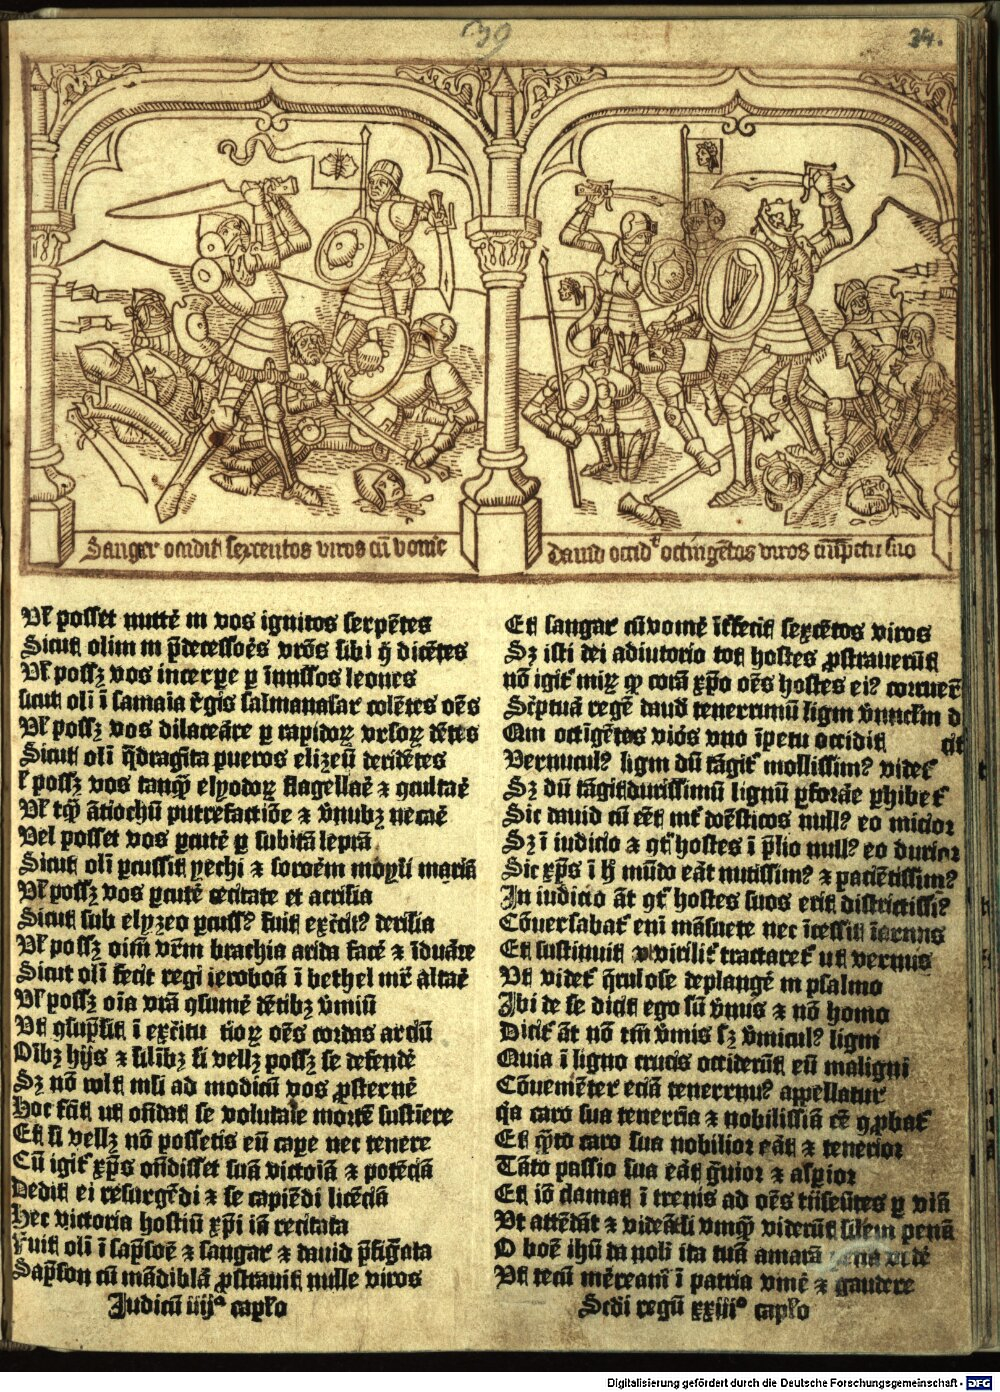 39
34.
Sangar occidit sexcentos viros cū vomē
david occidᵗ octingētos viros cū īpetu suo
Vl̓ posset mittē in vos ignitos serpētes
Sicut olim in p̄decessoēs vrōs sibi cōtdicētes
Vl̓ possꝫ vos incerpe p īmissos leones
sicut olī ī samaīa rēgis salmanasar colētes oēs
Vl̓ possꝫ vos dilaceāre p rapidoꝝ vrsoꝝ dētes
Sicut olī q̄dragīta pueros elizeū deridētes
l̓ possꝫ vos tanqͫ elyodoꝝ flagellaē ⁊ ꝯcultaē
Vl̓ tqͫ ātiochū putrefactiōe ⁊ v̄mibꝫ necaē
Vel posset vos ꝑcutē ꝑ subitā leprā
Sicut olī ꝑcussit yechi ⁊ sororēm moysi mariā
Vl̓ possꝫ vos ꝑcutē cecitate et acrisia
Sicut sub elyzeo ꝑcussꝰ fuit exērcitꝰ de siria
Vl̓ possꝫ oīm vrm̄ brachia arida facē ⁊ īduāre
Sicut olī fecit regi ieroboā ī bethel iux̄ altaē
Vl̓ possꝫ oīa vrā ꝯsumē dētibꝫ v̄miū
Vt ꝯsūpsit ī exc̄itu sioꝝ oēs cordas arcū
Oībꝫ hijs ⁊ silībꝫ si vellꝫ possꝫ se defendē
Sꝫ nō volt nisi ad modicū vos ꝓsternē
hoc fc̄it ut oñdat se volūtaīe mortē sustiēre
Et si vellꝫ nō possetis eū caꝑe nec tenere
Cū igit xp̄s oñdisset suā victoīā ⁊ potēciā
Dedit ei resurgēdi ⁊ se capiēdi licēciā
Hec victoria hostiū xp̄i iā recitata
Fuit olī ī sāpsoē ⁊ sangar ⁊ david p̄figata
Sāpson cū mādiblā ꝓstravit mille viros
Judicū iiijᵒ caplo
Et sangar cū vomē īterfecit sexcētos viros
Sꝫ isti dei adiutorio tot hostes ꝓstraverūt
nō igit mirꝫ qꝫ corā xp̄o oēs hostes eiꝰ corruēt
Sc̄ptuā regē david tenerrimū ligni v̄miclm̄ d
Qm octīgētos viros uno īpetu occidit cit
Vermiculꝰ ligni dū tāgit mollissimꝰ videt
Sꝫ dū tāgit durissimū lignū ꝑforāe ꝑhibet
Sic david cū eēt int̄ doēsticos nullꝰ eo micior
Sꝫ ī iudicio ⁊ ꝯt̄ hostes ī p̄lio nullꝰ eo durior
Sic xp̄s ī h mūdo eāt mitissimꝰ ⁊ paciētissimꝰ
In iudicio āt ꝯt̄ hostes suos erit districtissiꝰ
Cōversabat eni māsuete nec īcessit īermis
Et sustinuit vt virilit̄ tractaret ut vermis
Vt videt q̄rulose deplangē in psalmo
Ibi de se dicit ego sū v̄mis ⁊ nō homo
Dicit̄ āt nō tm̄ v̄mis sꝫ v̄miculꝰ ligni
Quia ī ligno crucis occiderūt eū maligni
Cōveniēter eciā tenerrimꝰ appellatur
qa caro sua tenerr̄ia ⁊ nobilissiā eē ꝯꝓbat̄
Et q̄nto caro sua nobilior eāt ⁊ tenerior
Tāto passio sua eāt ḡvior ⁊ asp̄ior
Et iō clamat ī trenis ad oēs trāseūtes ꝑ viā
Vt attēdāt ⁊ videāt si vnqͫ viderūt silem penā
O boē ihū da nobis ita tuā amarā penā vidē
Vt tecū mēream̄ ī patria vivē ⁊ gaudere
Scd̄i regū xxiijᵒ caplo
Digitalisierung gefördert durch die Deutsche Forschungsgemeinschaft - DFG